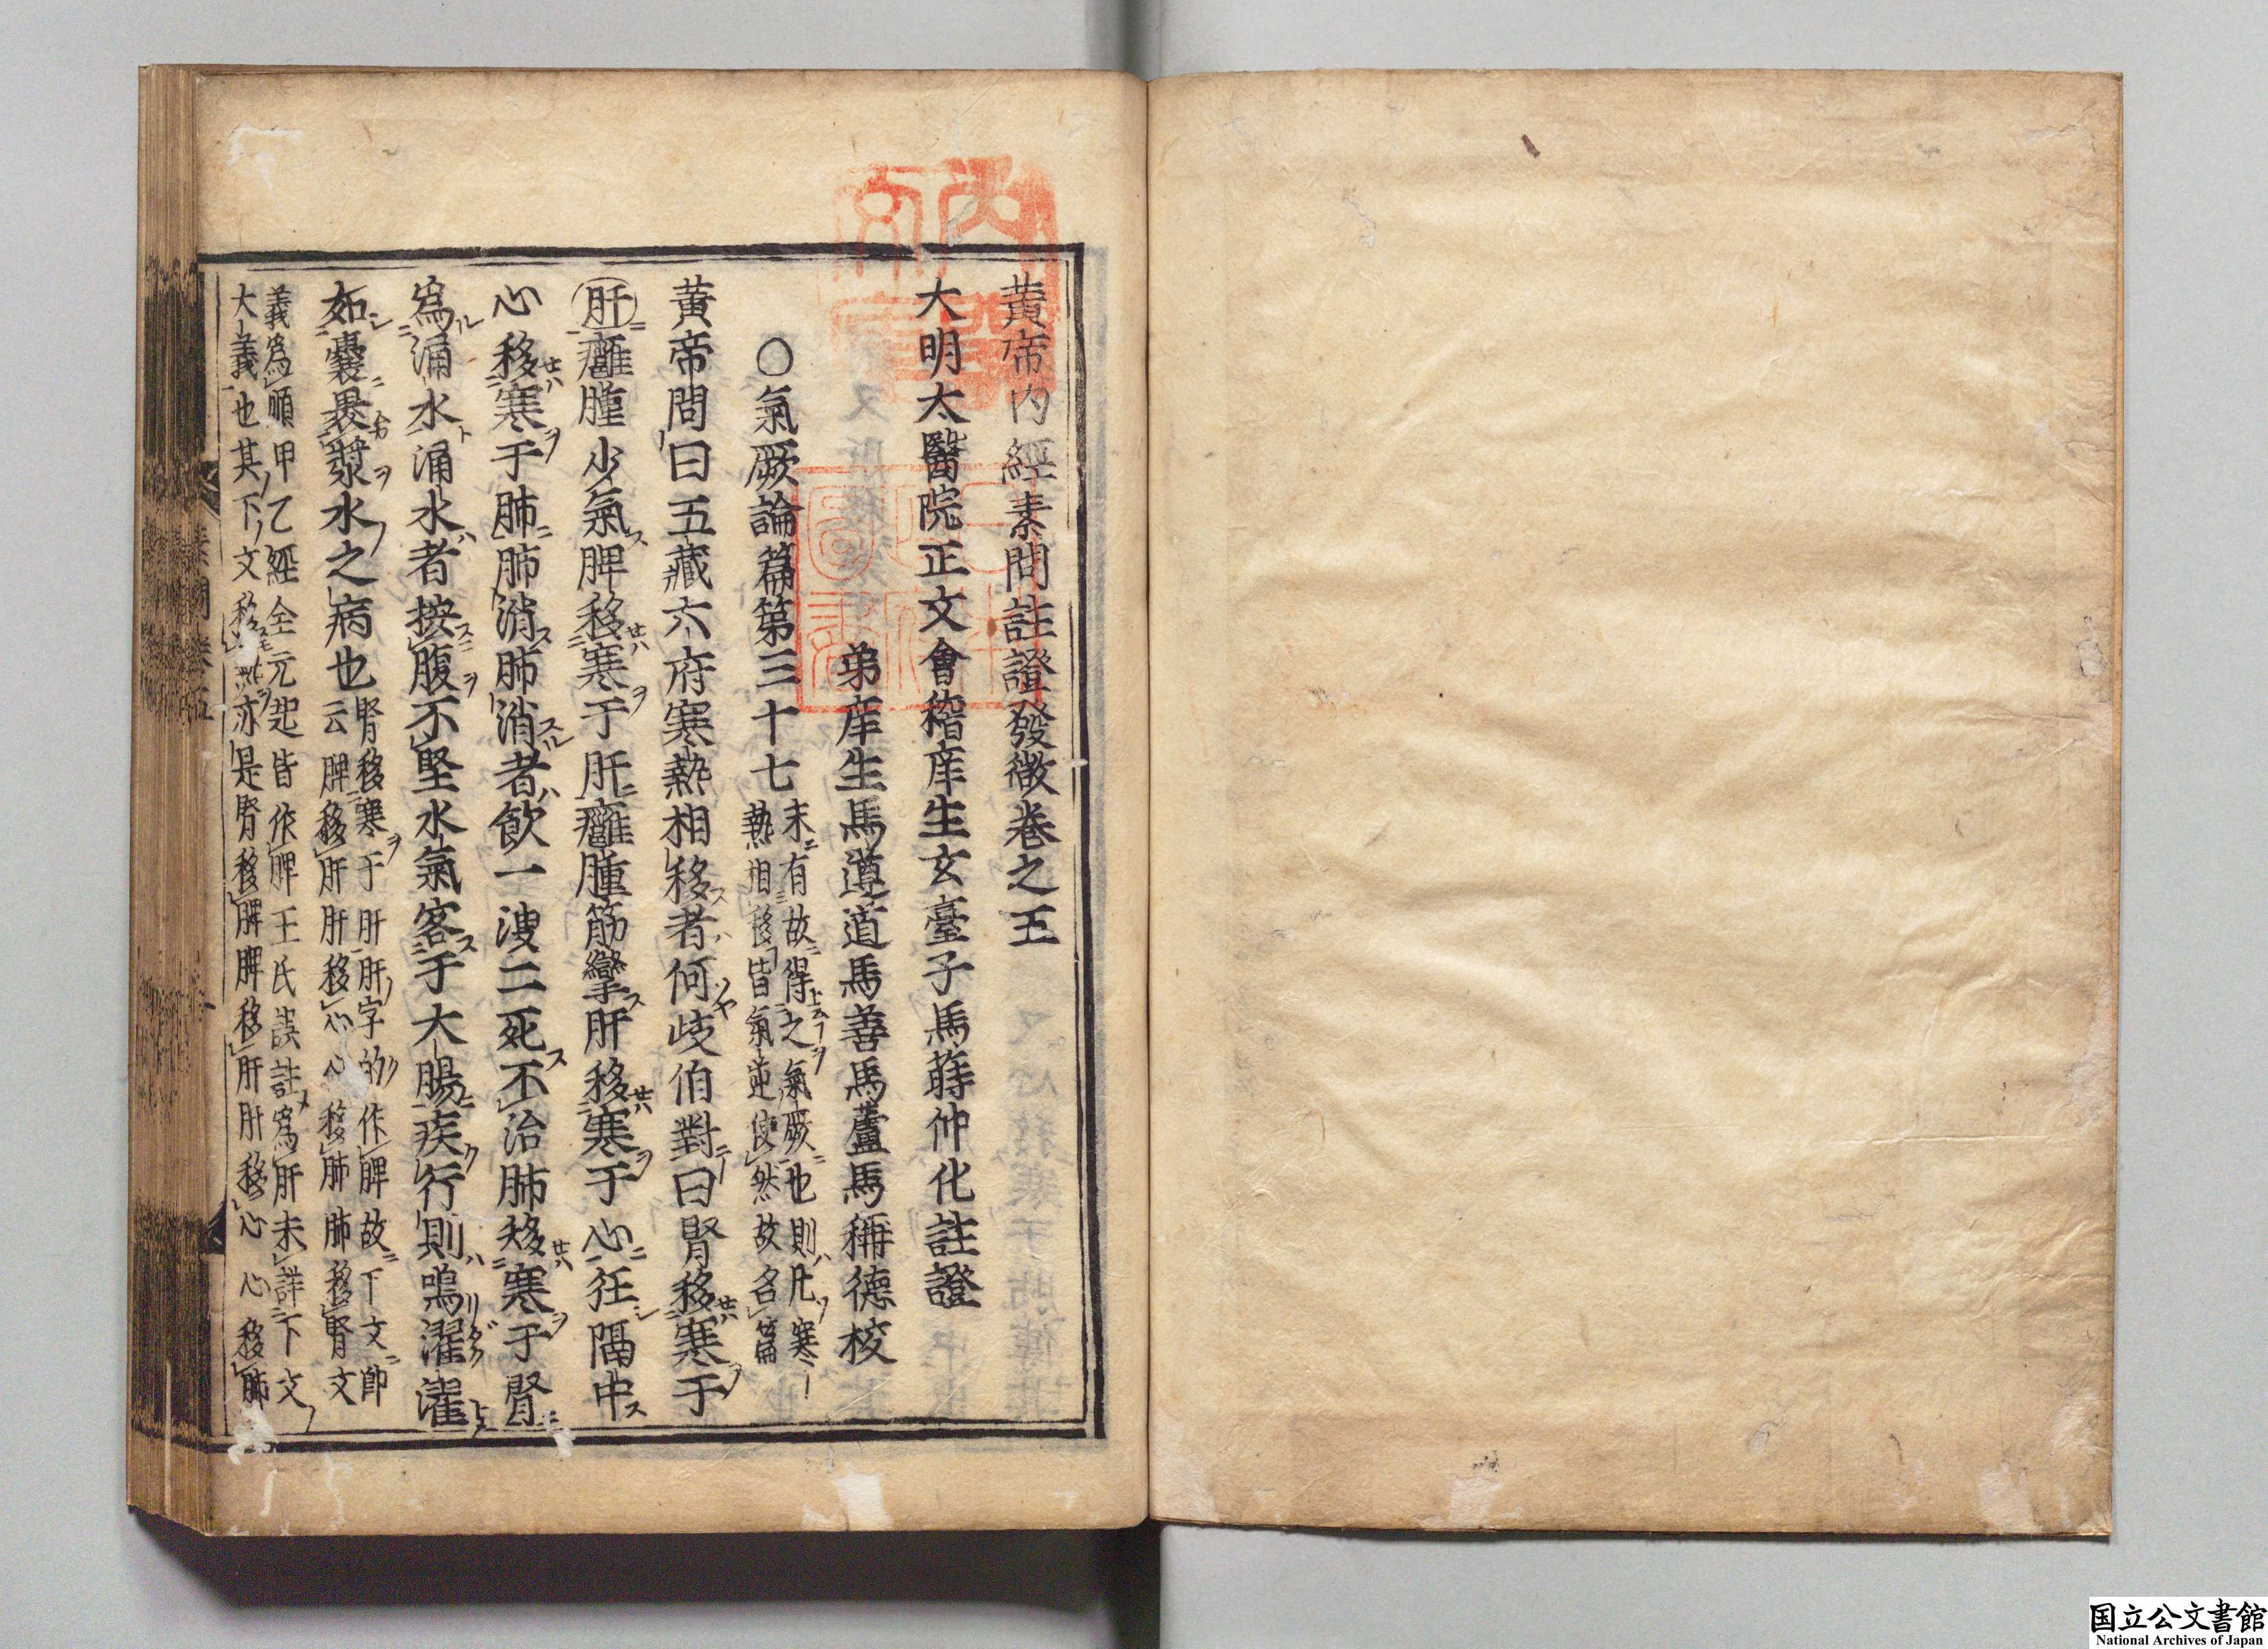 黃帝內經素問註證發微卷之五
大明太醫院正文會稽庠生玄臺子馬蒔仲化註證
弟庠生馬遵道馬善馬蘆馬稱德校
○氣厥論篇第三十七
末有故得之氣厥也則凡寒
熱相移皆氣逆使然故名篇
黃帝問曰五藏六府寒熱相移者何歧伯對曰腎移寒于
肝癰腫少氣脾移寒于肝癰腫筋攣肝移寒于心狂隔中
心移寒于肺肺消肺消者飲一溲二死不治肺移寒于腎
爲涌水涌水者按腹不堅水氣客于大腸疾行則鳴濯濯
如囊裹漿水之病也
腎移寒于肝肝字的作脾故下文節
云脾移肝肝移心心移肺肺移腎文
義爲順甲乙經全元起皆作脾王氏誤註爲肝未詳下文
大義也其下文移熱亦是腎移脾脾移肝肝移心心移肺
素問卷五
国立公文書館
National Archives of Japan